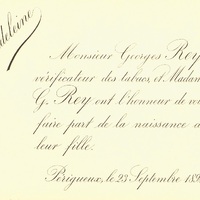 Madeleine
Monsieur Georges Rey
vérificateur des tabacs, et Madam
G. Rey ont l'honneur de vo
faire part de la naissance d
leur fille.
Périgueux, le 23 Septembre 18